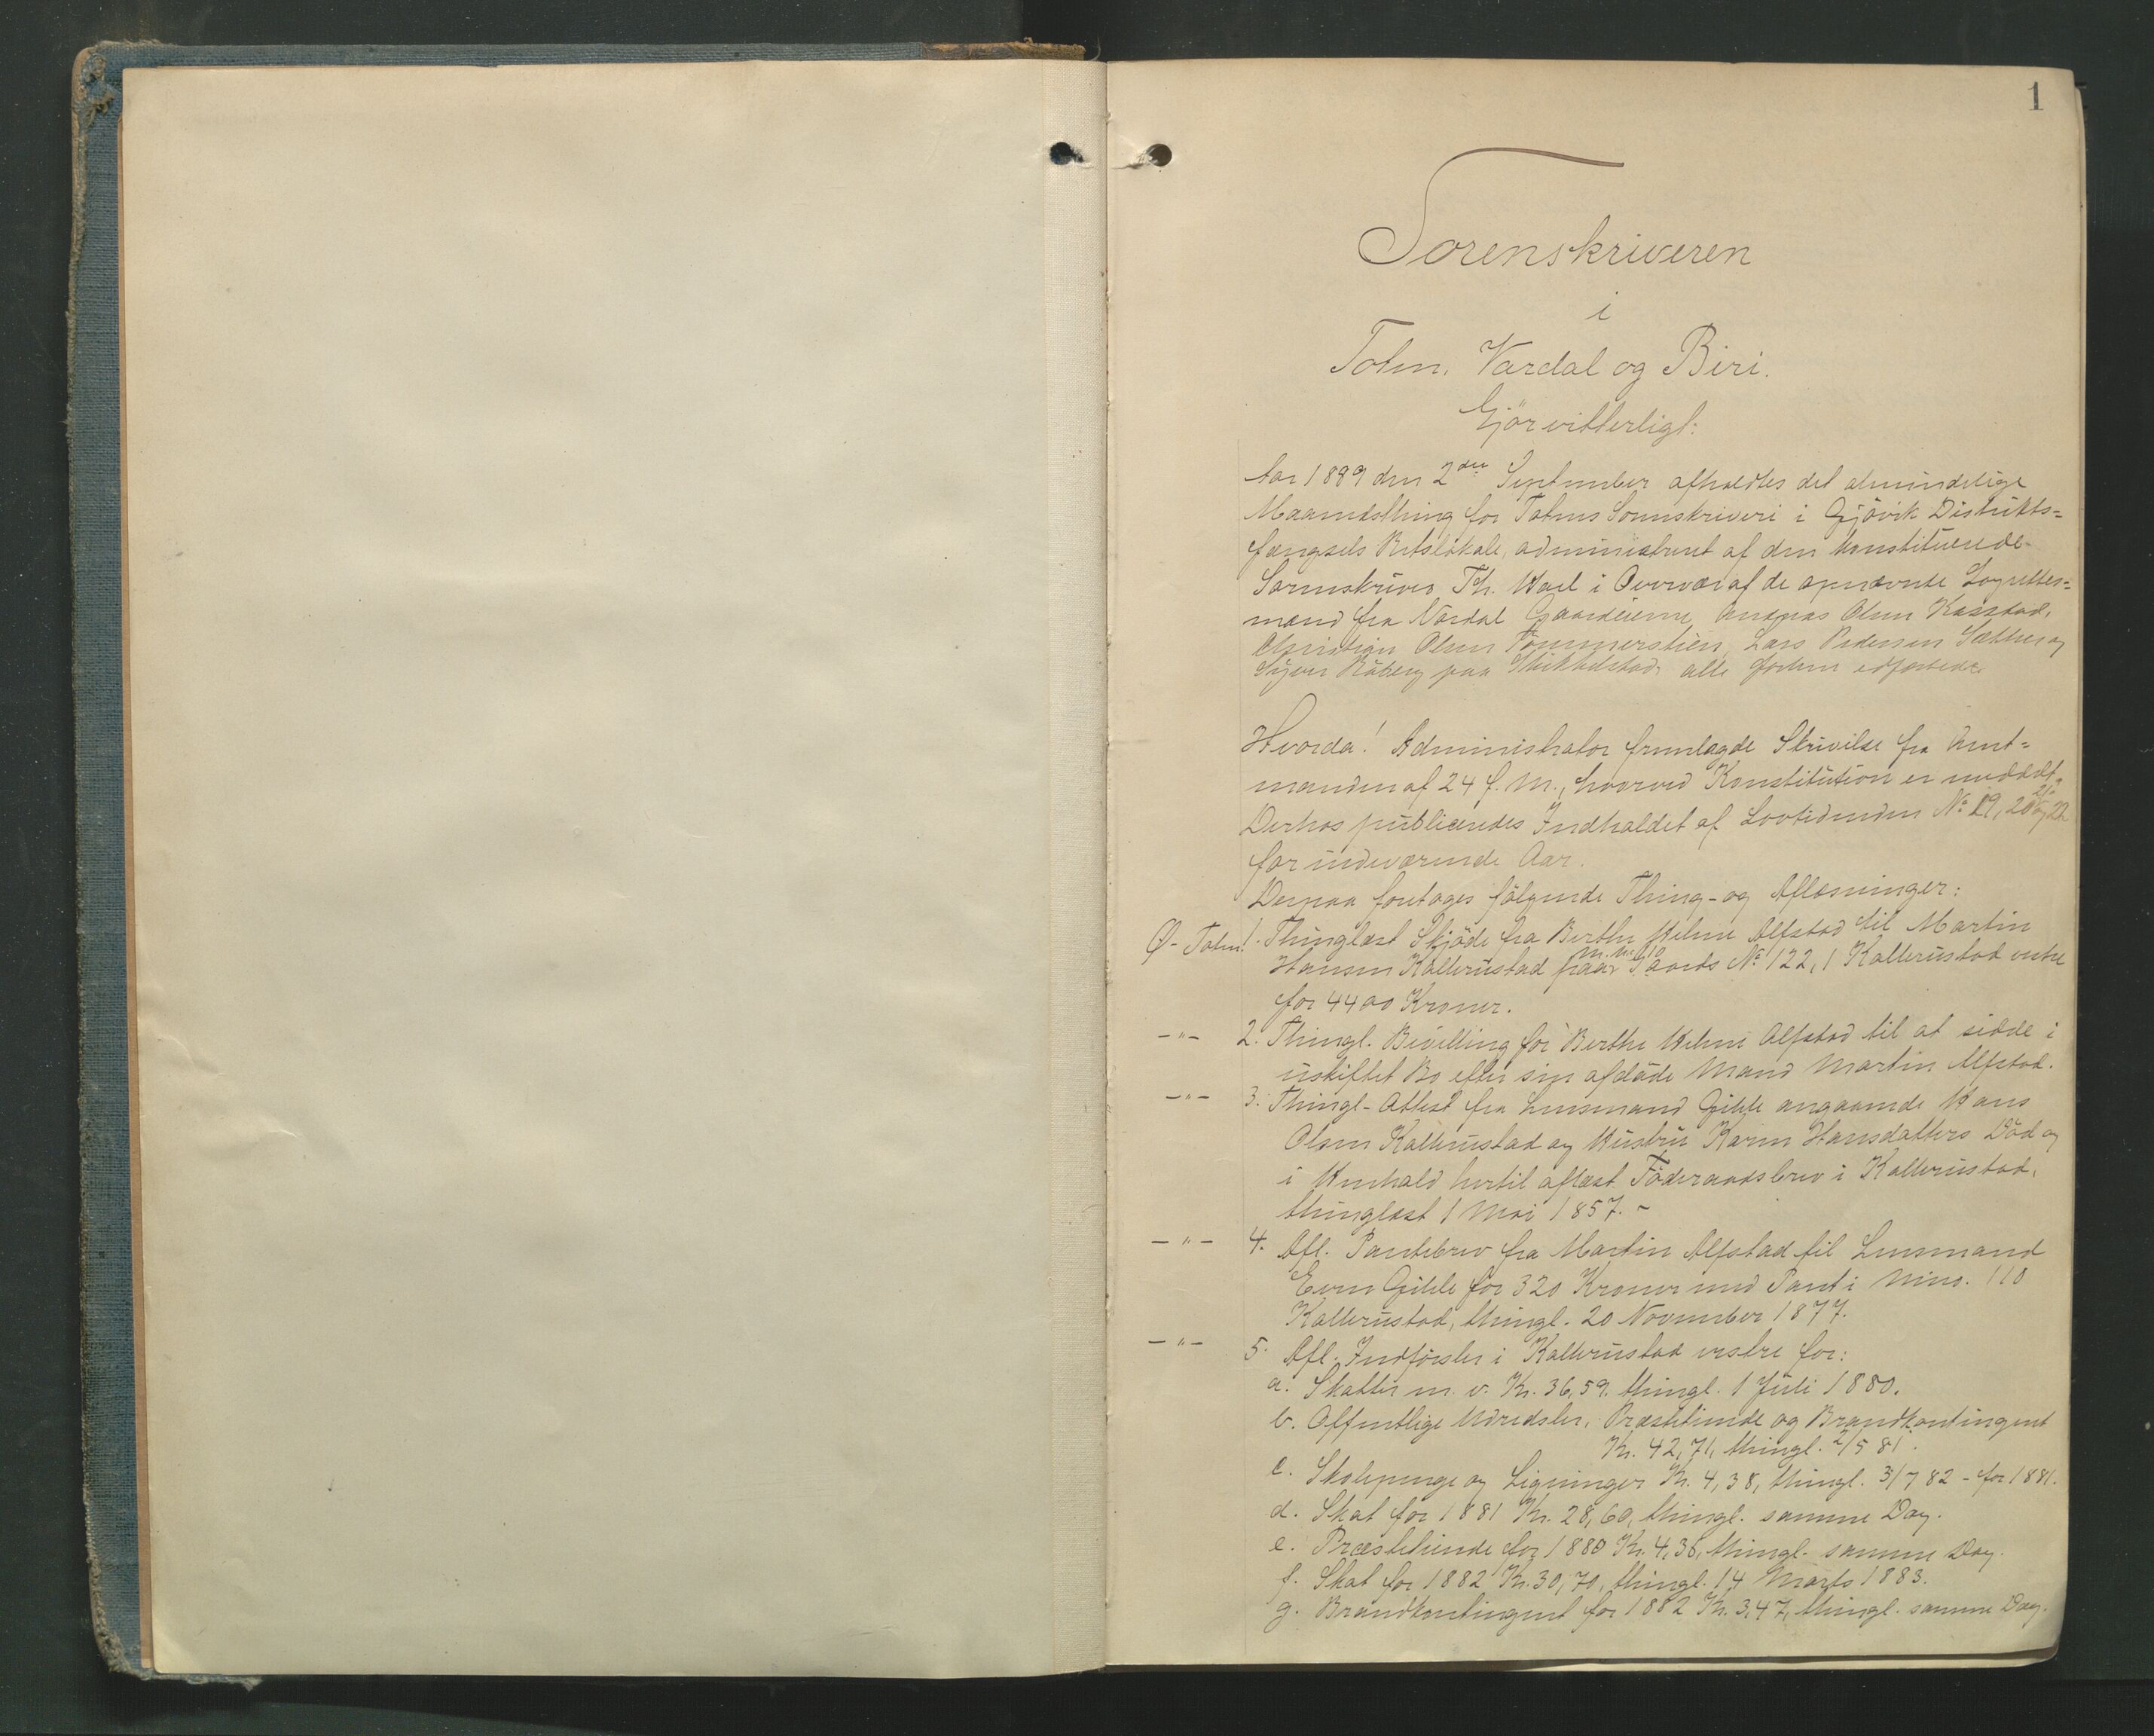 1
Sorenskriveren
i
Toten, Vardal og Biri.
Gjör vitterligt:
Aar 1889 den 2den September afholdtes det almindelige
Maanedsthing for Totens Sorenskriveri i Gjövik Distrikts=
fængsels Retslokale, administreret af den konstituerede
Sorenskriver Th. i Overvær af de opnævnte Lagrettes=
mænd fra Vardal Gaardeierne Andreas Olsen Kasstad,
Christian Olsen Tömmerstien, Lars Pedersen Sætther og
Syver Raaberg paa alle forhen edfæstede.
Hvorda! Administrator fremlagde Skrivelse fra Amt=
manden af 24 f. M., hvorved Konstitution er meddelt.
Derhos publiceredes Indholdet af Lovtidenden No 19, 20, 21 og 22
for indeværende Aar.
Derpaa foretages fölgende Thing- og Aflæsninger:
Ö-Toten 1. Thinglæst Skjöde fra Berthe Helene Alfstad til Martin
Hansen Kallerustad paa M. No 110 Gaards No 122,1 Kallerustad vestre
for 4400 Kroner.
-"- 2. Thingl. Bevilling for Berthe Helene Alfstad til at sidde i
uskiftet Bo efter sin afdöde Mand Martin Alfstad.
-"- 3. Thingl- Attest fra Lensmand Gihle angaaende Hans
Olsen Kallerustad og Hustru Karen Hansdatters Död og
i Henhold hertil aflæst Föderaadsbrev i Kallerustad,
thinglæst 1 Mai 1857. -
-"- 4. Afl. Pantebrev fra Martin Alfstad til Lensmand
Even Gihle for 320 Kroner med Pant i Mno. 110
Kallerustad, thingl. 20 November 1877.
-"- 5. Afl. Indförsler i Kallerustad vestre for:
a. Skatter m. v. Kr. 36,59. thingl. 1 Juli 1880.
b. Offentlige Udredsler, Præstetiende og Brandkontingent
Kr. 42,71, thingl. 2/5 81.
c. Skolepenge og Ligninger Kr. 4,38, thingl. 3/7 82 - for 1881.
d. Skat for 1881 Kr. 28,60, thingl. samme Dag.
e. Præstetiende for 1880 Kr. 4,36, thingl. samme Dag.
f. Skat for 1882 Kr. 30,70, thingl. 14 Marts 1883.
g. Brandkontingent for 1882 Kr. 3,47, thingl. samme Dag.